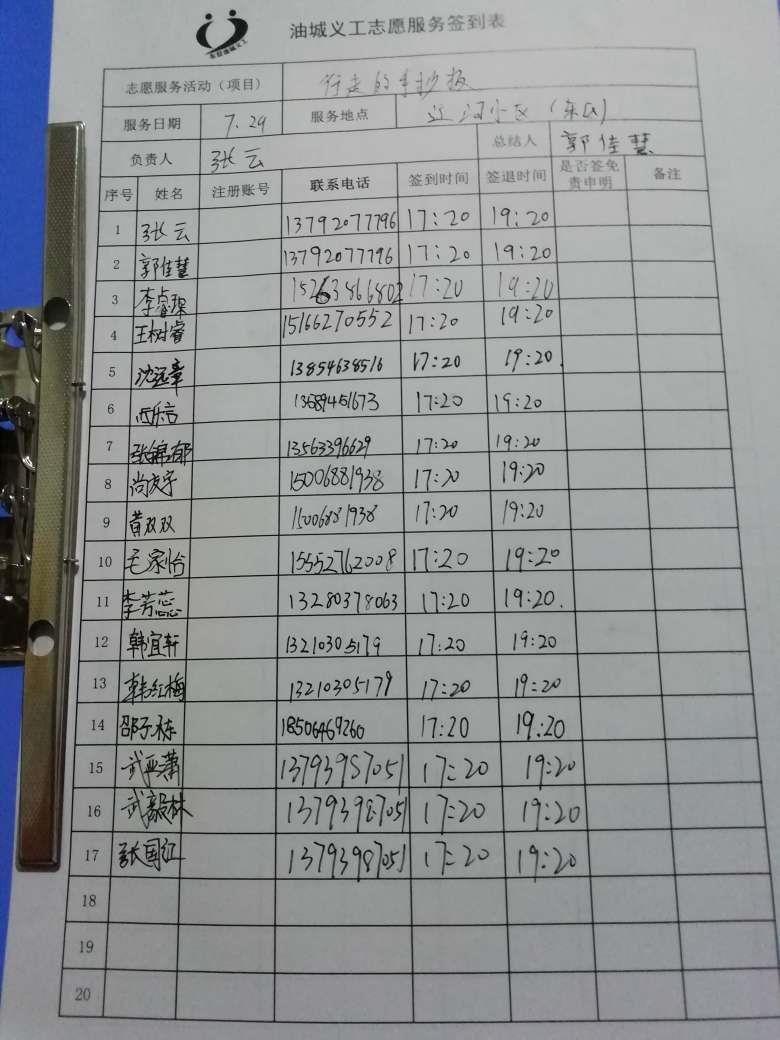 油城义工志愿服务签到表
志愿服务活动（项目） 行走的手抄板
服务日期 7.29 服务地点 辽河小区（东区）
负责人 张云 总结人 郭佳慧
序号 姓名 注册账号 联系电话 签到时间 签退时间 是否签免责申明 备注
1 张云 13792077796 17:20 19:20
2 郭佳慧 13792077796 17:20 19:20
3 李睿琛 15263466802 17:20 19:20
4 王树睿 15166270552 17:20 19:20
5 沈远章 13854638516 17:20 19:20.
6 17:20 19:20
7 张锦郁 13563396629 17:20 19:20
8 尚庆宇 15006881938 17:20 19:20
9 黄双双 15006881938 17:20 19:20
10 毛家怡 15552762008 17:20 19:20
11 李芳蕊 13280378063 17:20 19:20.
12 韩宜轩 13210305179 17:20 19:20
13 韩红梅 13210305179 17:20 19:20
14 邵子栋 18506469260 17:20 19:20
15 武亚萧 13793987051 17:20 19:20
16 武毅林 13793987051 17:20 19:20
17 张国红 13793987051 17:20 19:20
18
19
20